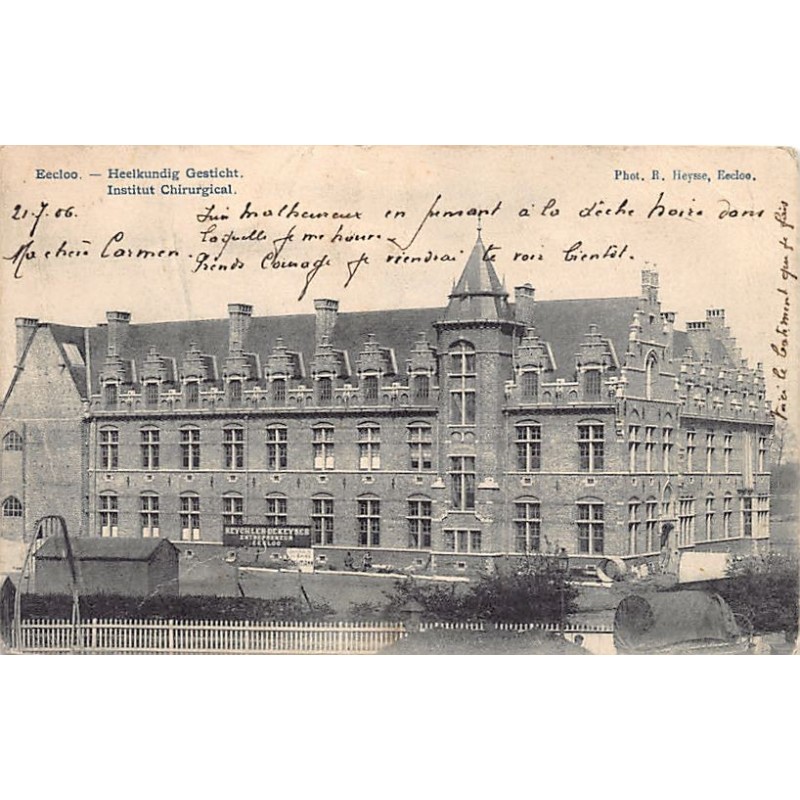 Eecloo. — Heelkundig Gesticht.
Institut Chirurgical.
Phot. R. Heysse, Eecloo.
21-7-06.
Suis malheureux en pensant à la dêche noire dans
laquelle je me trouve.
Ma chère Carmen.
Prends courage je viendrai te voir bientôt.
Voici le batiment que je fais
DEKEYSER
ENTREPRENEUR
EECLOO